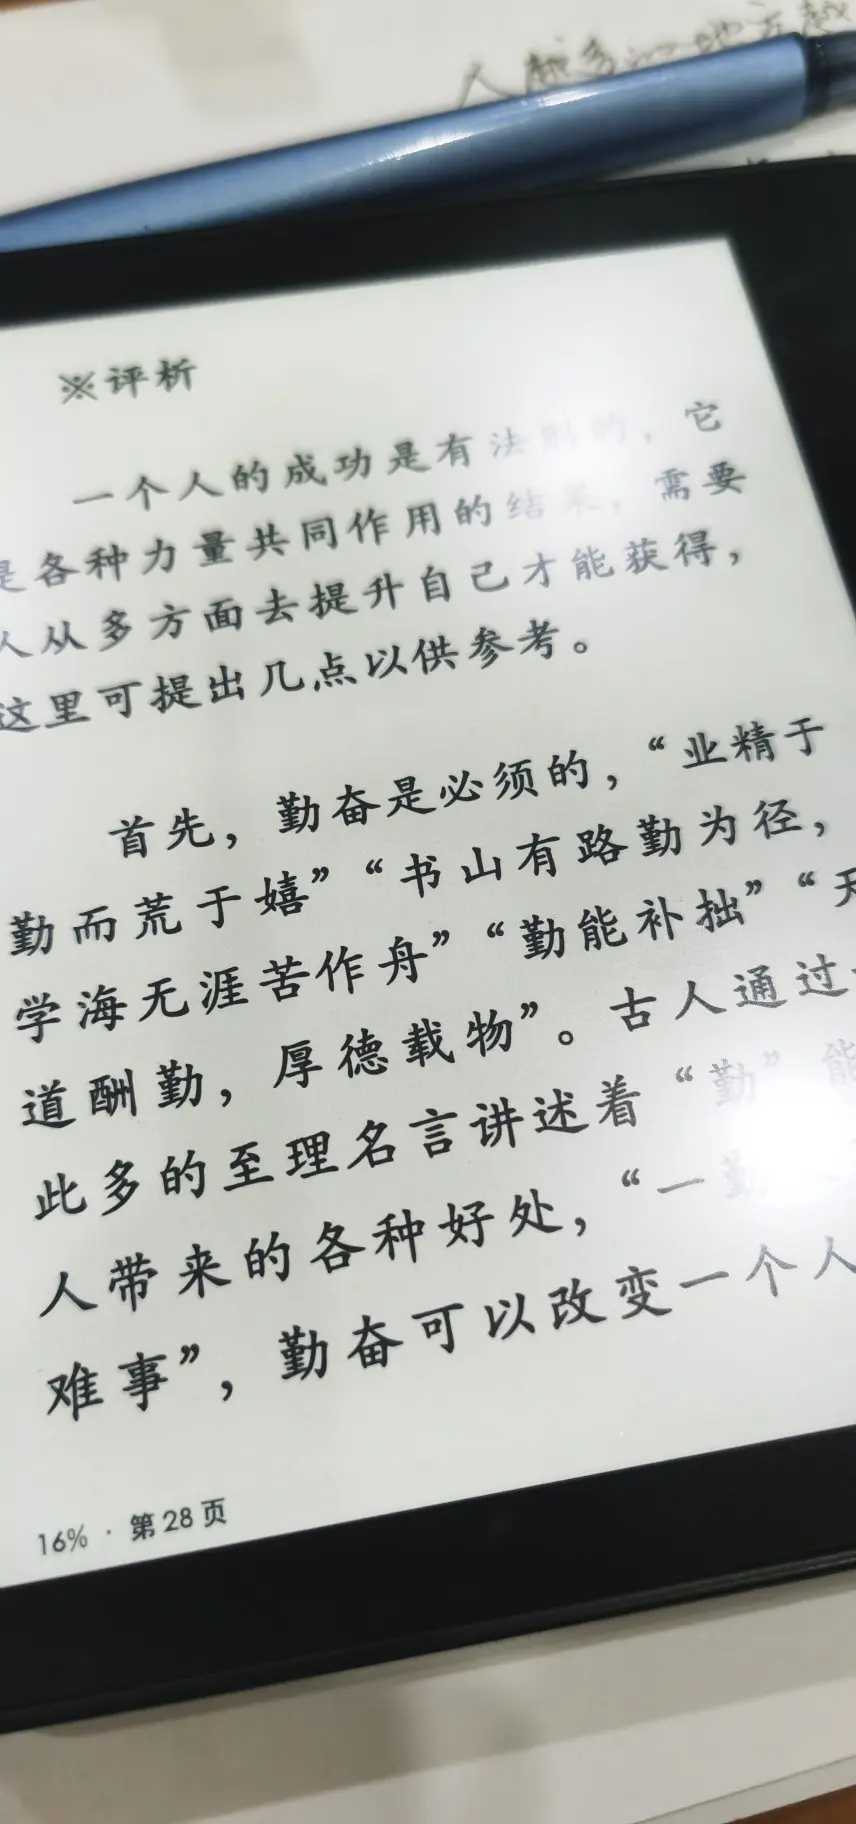 人越多的地方越
※评析
一个人的成功是有法则的，它
是各种力量共同作用的结果，需要
人从多方面去提升自己才能获得，
这里可提出几点以供参考。
首先，勤奋是必须的，“业精于
勤而荒于嬉”“书山有路勤为径，
学海无涯苦作舟”“勤能补拙”“天
道酬勤，厚德载物”。古人通过
此多的至理名言讲述着“勤”能
人带来的各种好处，“一勤
难事”，勤奋可以改变一个人
16% · 第28页